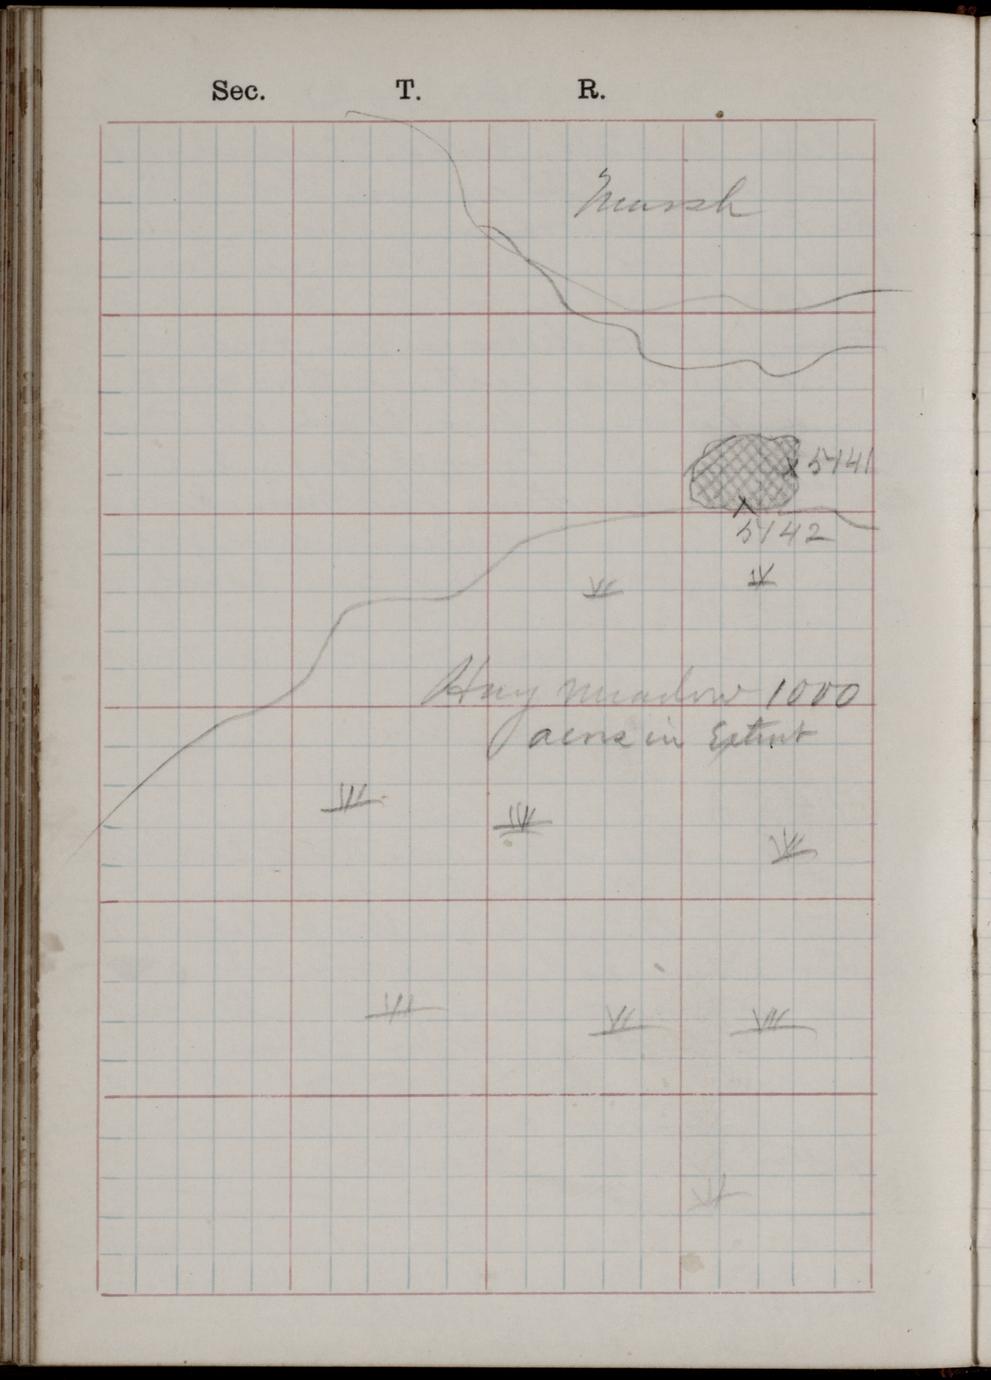 Sec. T. R.
Marsh
5141
5142
Hay meadow 1000
acres in Extent